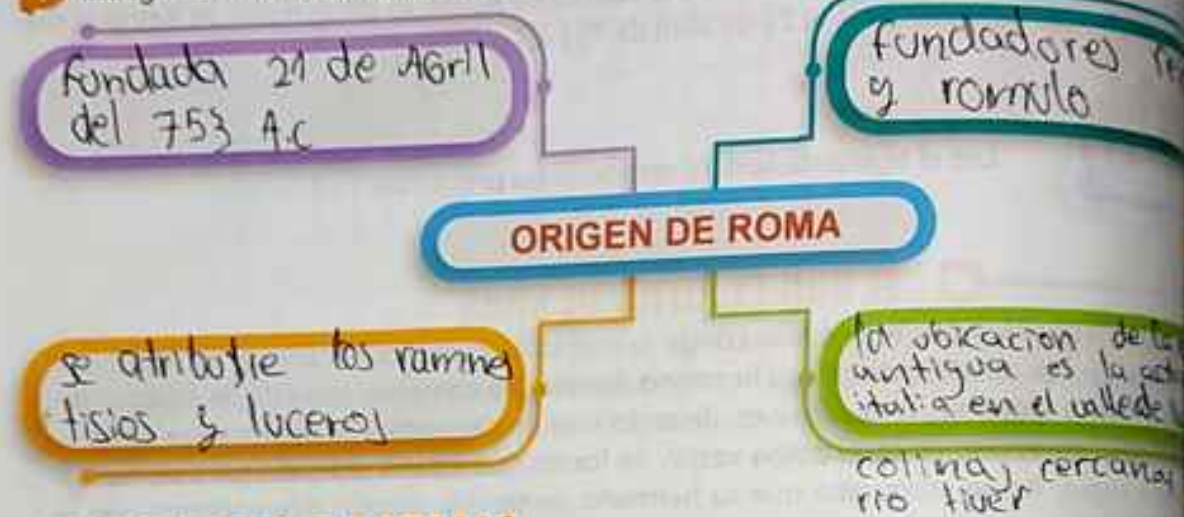 Fundada 21 de AGril
del 753 A.C
fundadores
y romulo
ORIGEN DE ROMA
se atribuye los ramne
tisios y luceros
la ubicacion de la
antigua es la
italia en el valle de
colina, cercana,
rio tiver